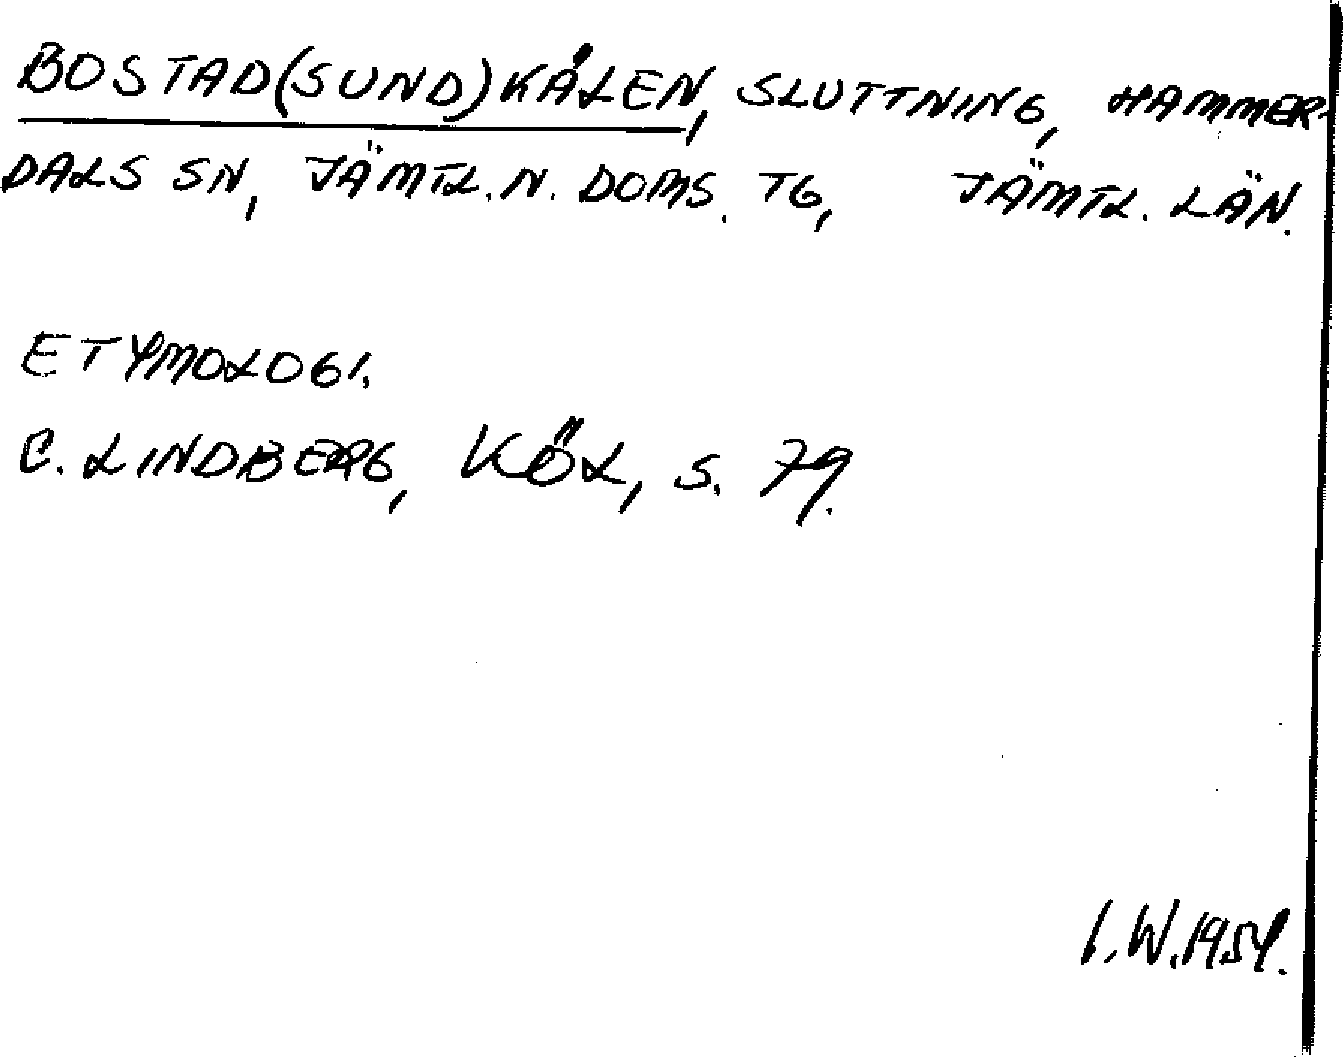 BOSTAD(SUND)KÅLEN, SLUTTNING, HAMMER-
DALS SN, JÄMTL. N. DOMS. TG, JÄMTL. LÄN.
ETYMOLOGI.
C. LINDBERG, KÖL, S. 79.
I.W.1954.